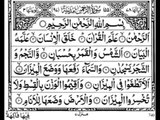 بِسْمِ اللهِ الرَّحْمٰنِ الرَّحِيْمِ
اَلرَّحْمٰنُ عَلَّمَ الْقُرْاٰنَ خَلَقَ الْاِنْسَانَ عَلَّمَهُ
الْبَيَانَ اَلشَّمْسُ وَالْقَمَرُ بِحُسْبَانٍ وَّالنَّجْمُ وَ
الشَّجَرُ يَسْجُدٰنِ وَالسَّمَآءَ رَفَعَهَا وَوَضَعَ الْمِيْزَانَ
اَلَّا تَطْغَوْا فِي الْمِيْزَانِ وَاَقِيْمُوا الْوَزْنَ بِالْقِسْطِ وَلَا
تُخْسِرُوا الْمِيْزَانَ وَالْاَرْضَ وَضَعَهَا لِلْاَنَامِ